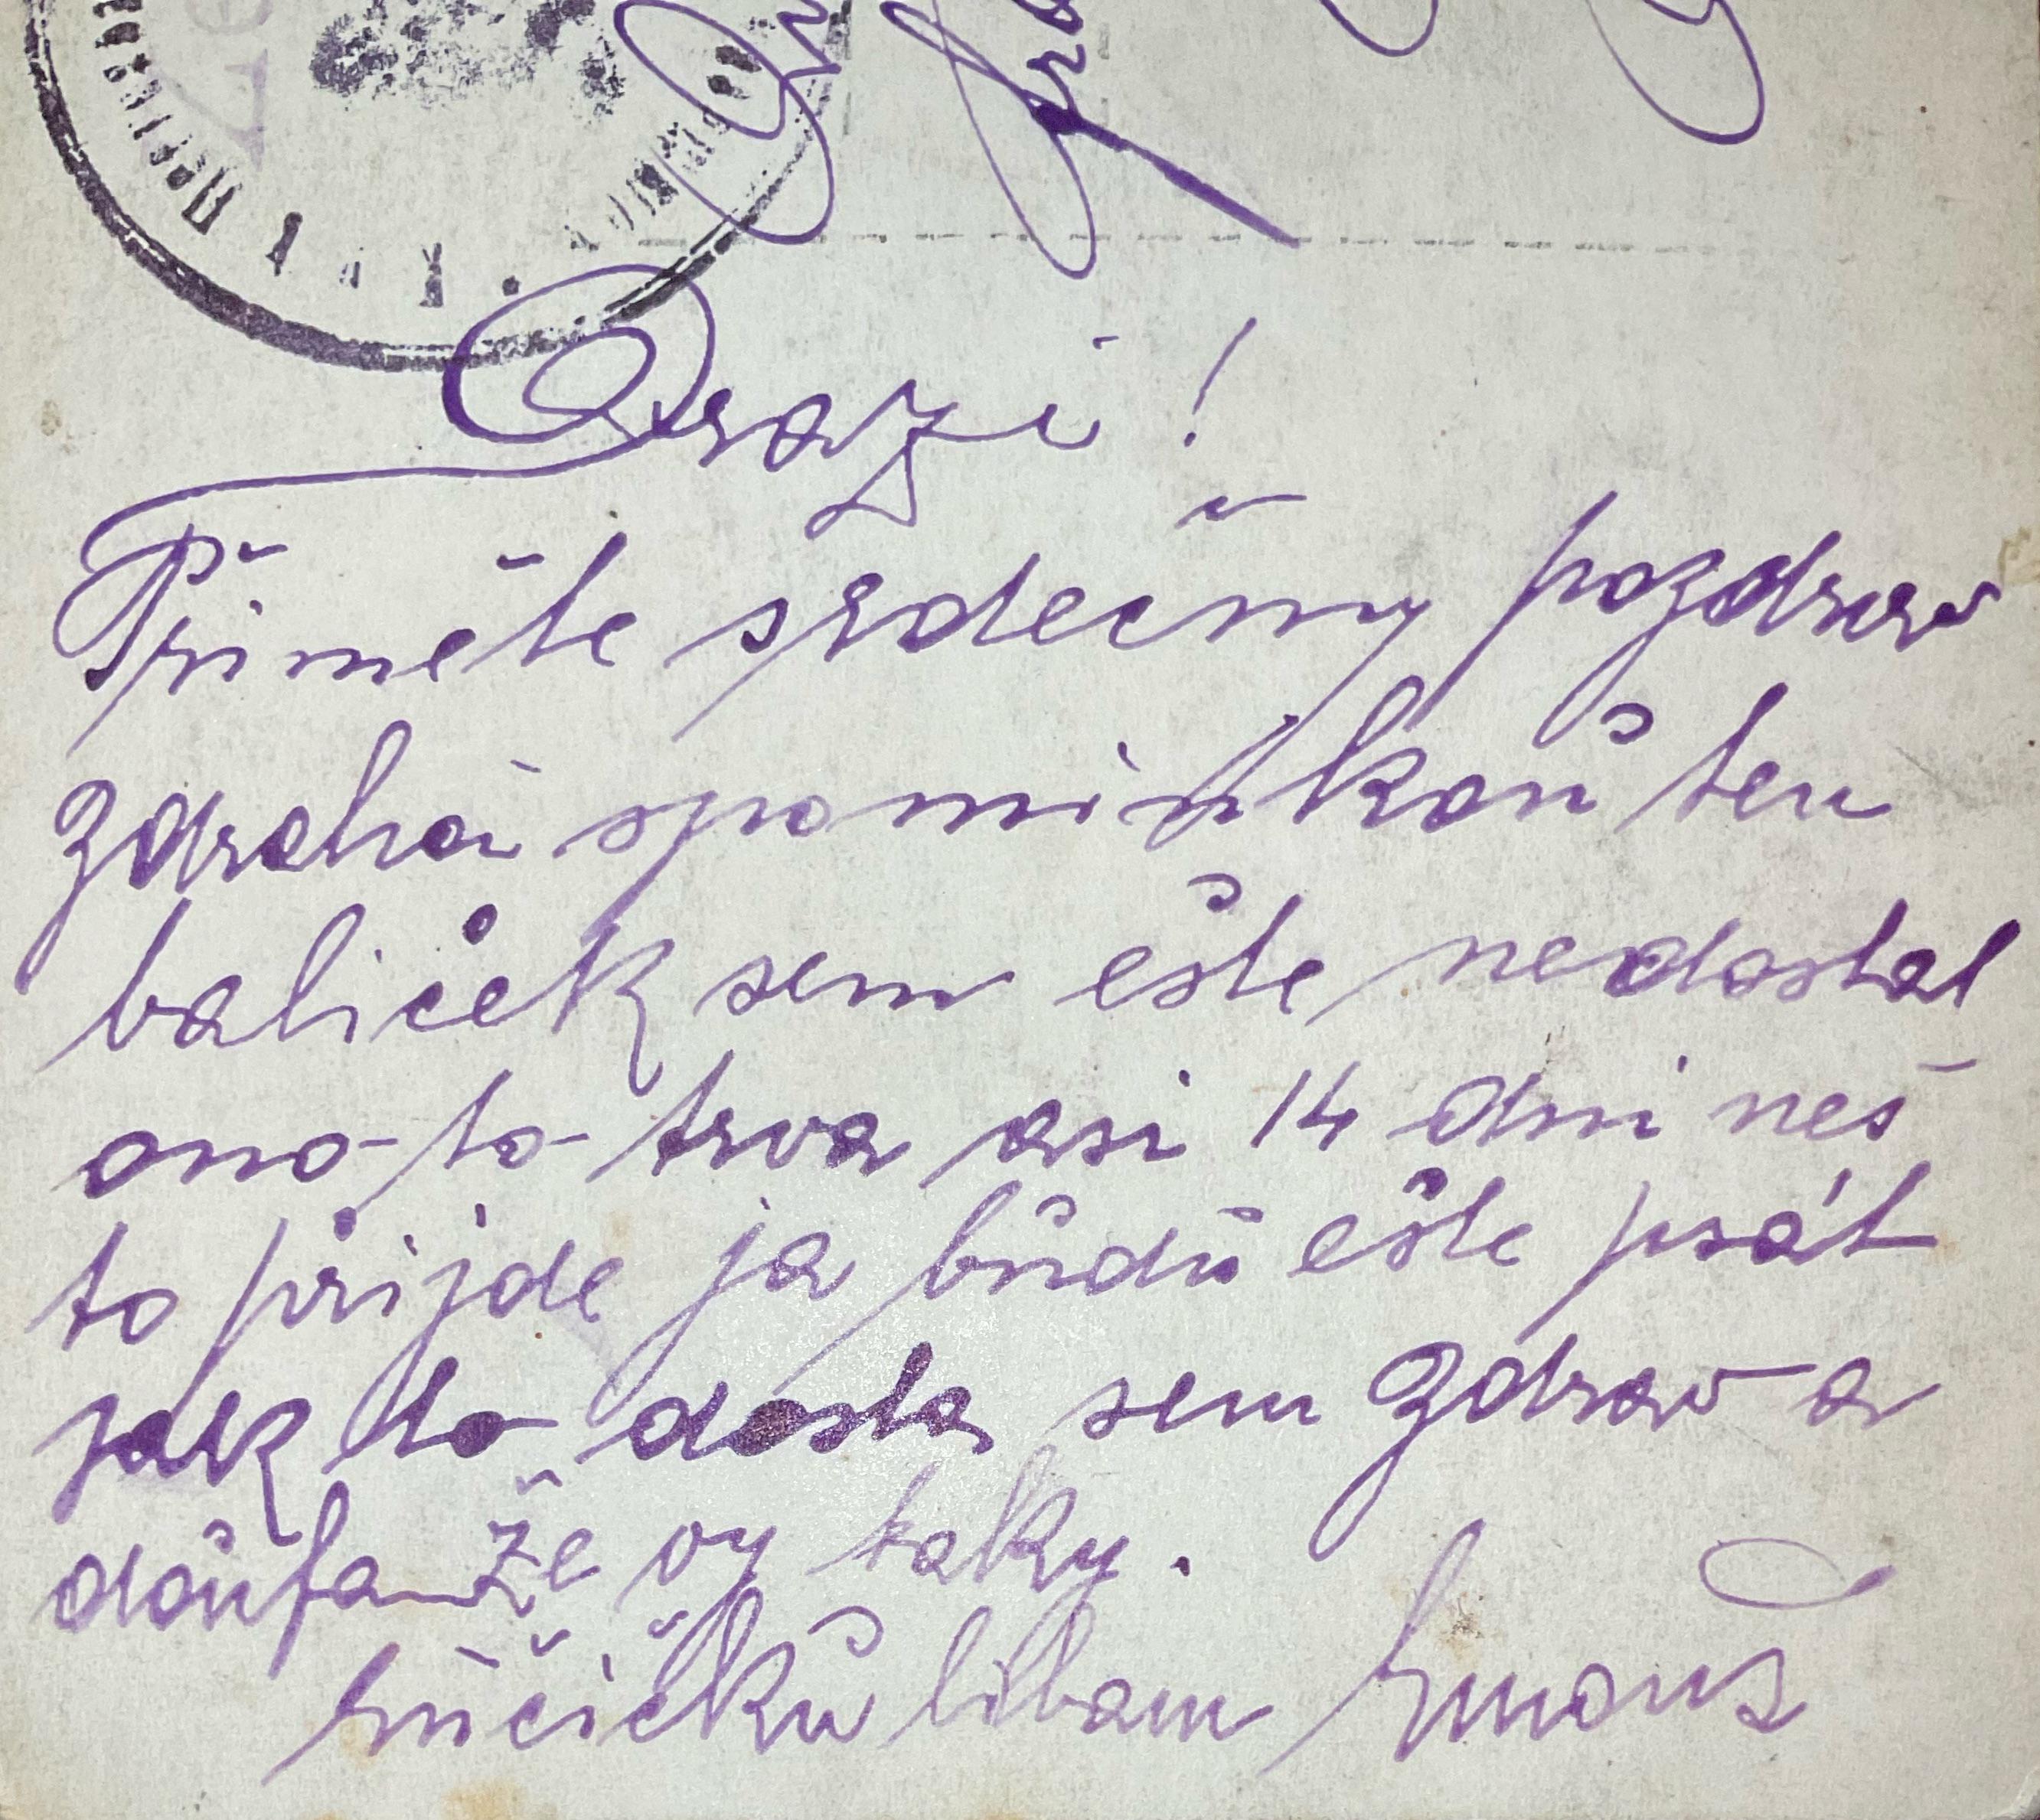 Drazí!
Přiměte srdečny pozdrav
Zdraha spominkou ten
baliček sem ešte nedostal
ono-to-trva asi 14 dni neš
to přijde ja budu ešte psát
jak to dosta sem Zdrav a
doufam že vy taky.
ručičku libam